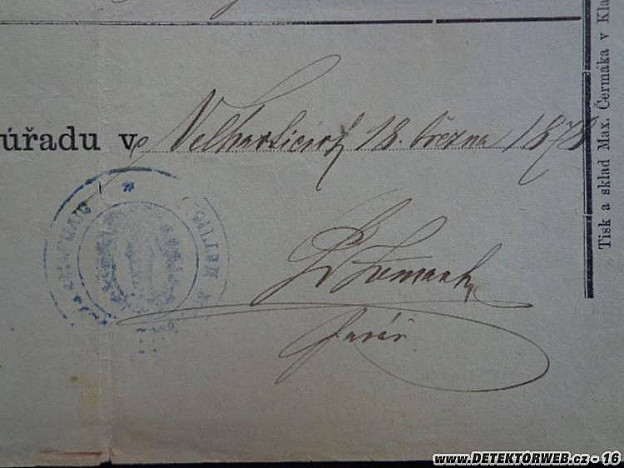 úřadu v Velharticích 18. března 1878
farář
Tisk a sklad Max. Čermáka v Kla
www.DETEKTORWEB.cz - 16